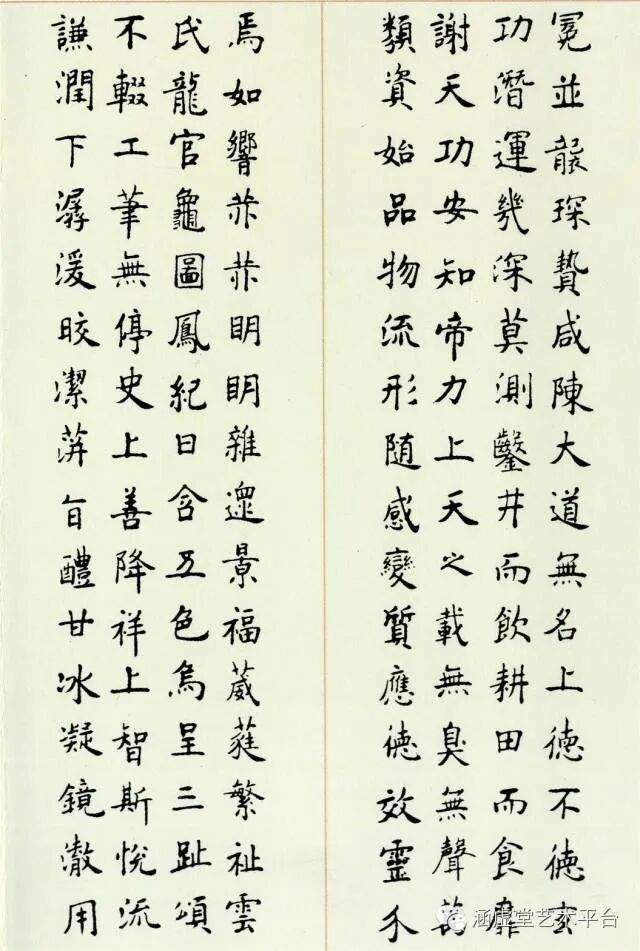 冕並襲琛贄咸陳大道無名上德不德玄
功潛運幾深莫測鑿井而飲耕田而食靡
謝天功安知帝力上天之載無臭無聲萬
類資始品物流形隨感變質應德效靈介
焉如響赫赫明明雜遝景福葳蕤繁祉雲
氏龍官龜圖鳳紀日含五色烏呈三趾頌
不輟工筆無停史上善降祥上智斯悅流
謙潤下潺湲皎潔蓱旨醴甘冰凝鏡澈用
涵虚堂艺术平台